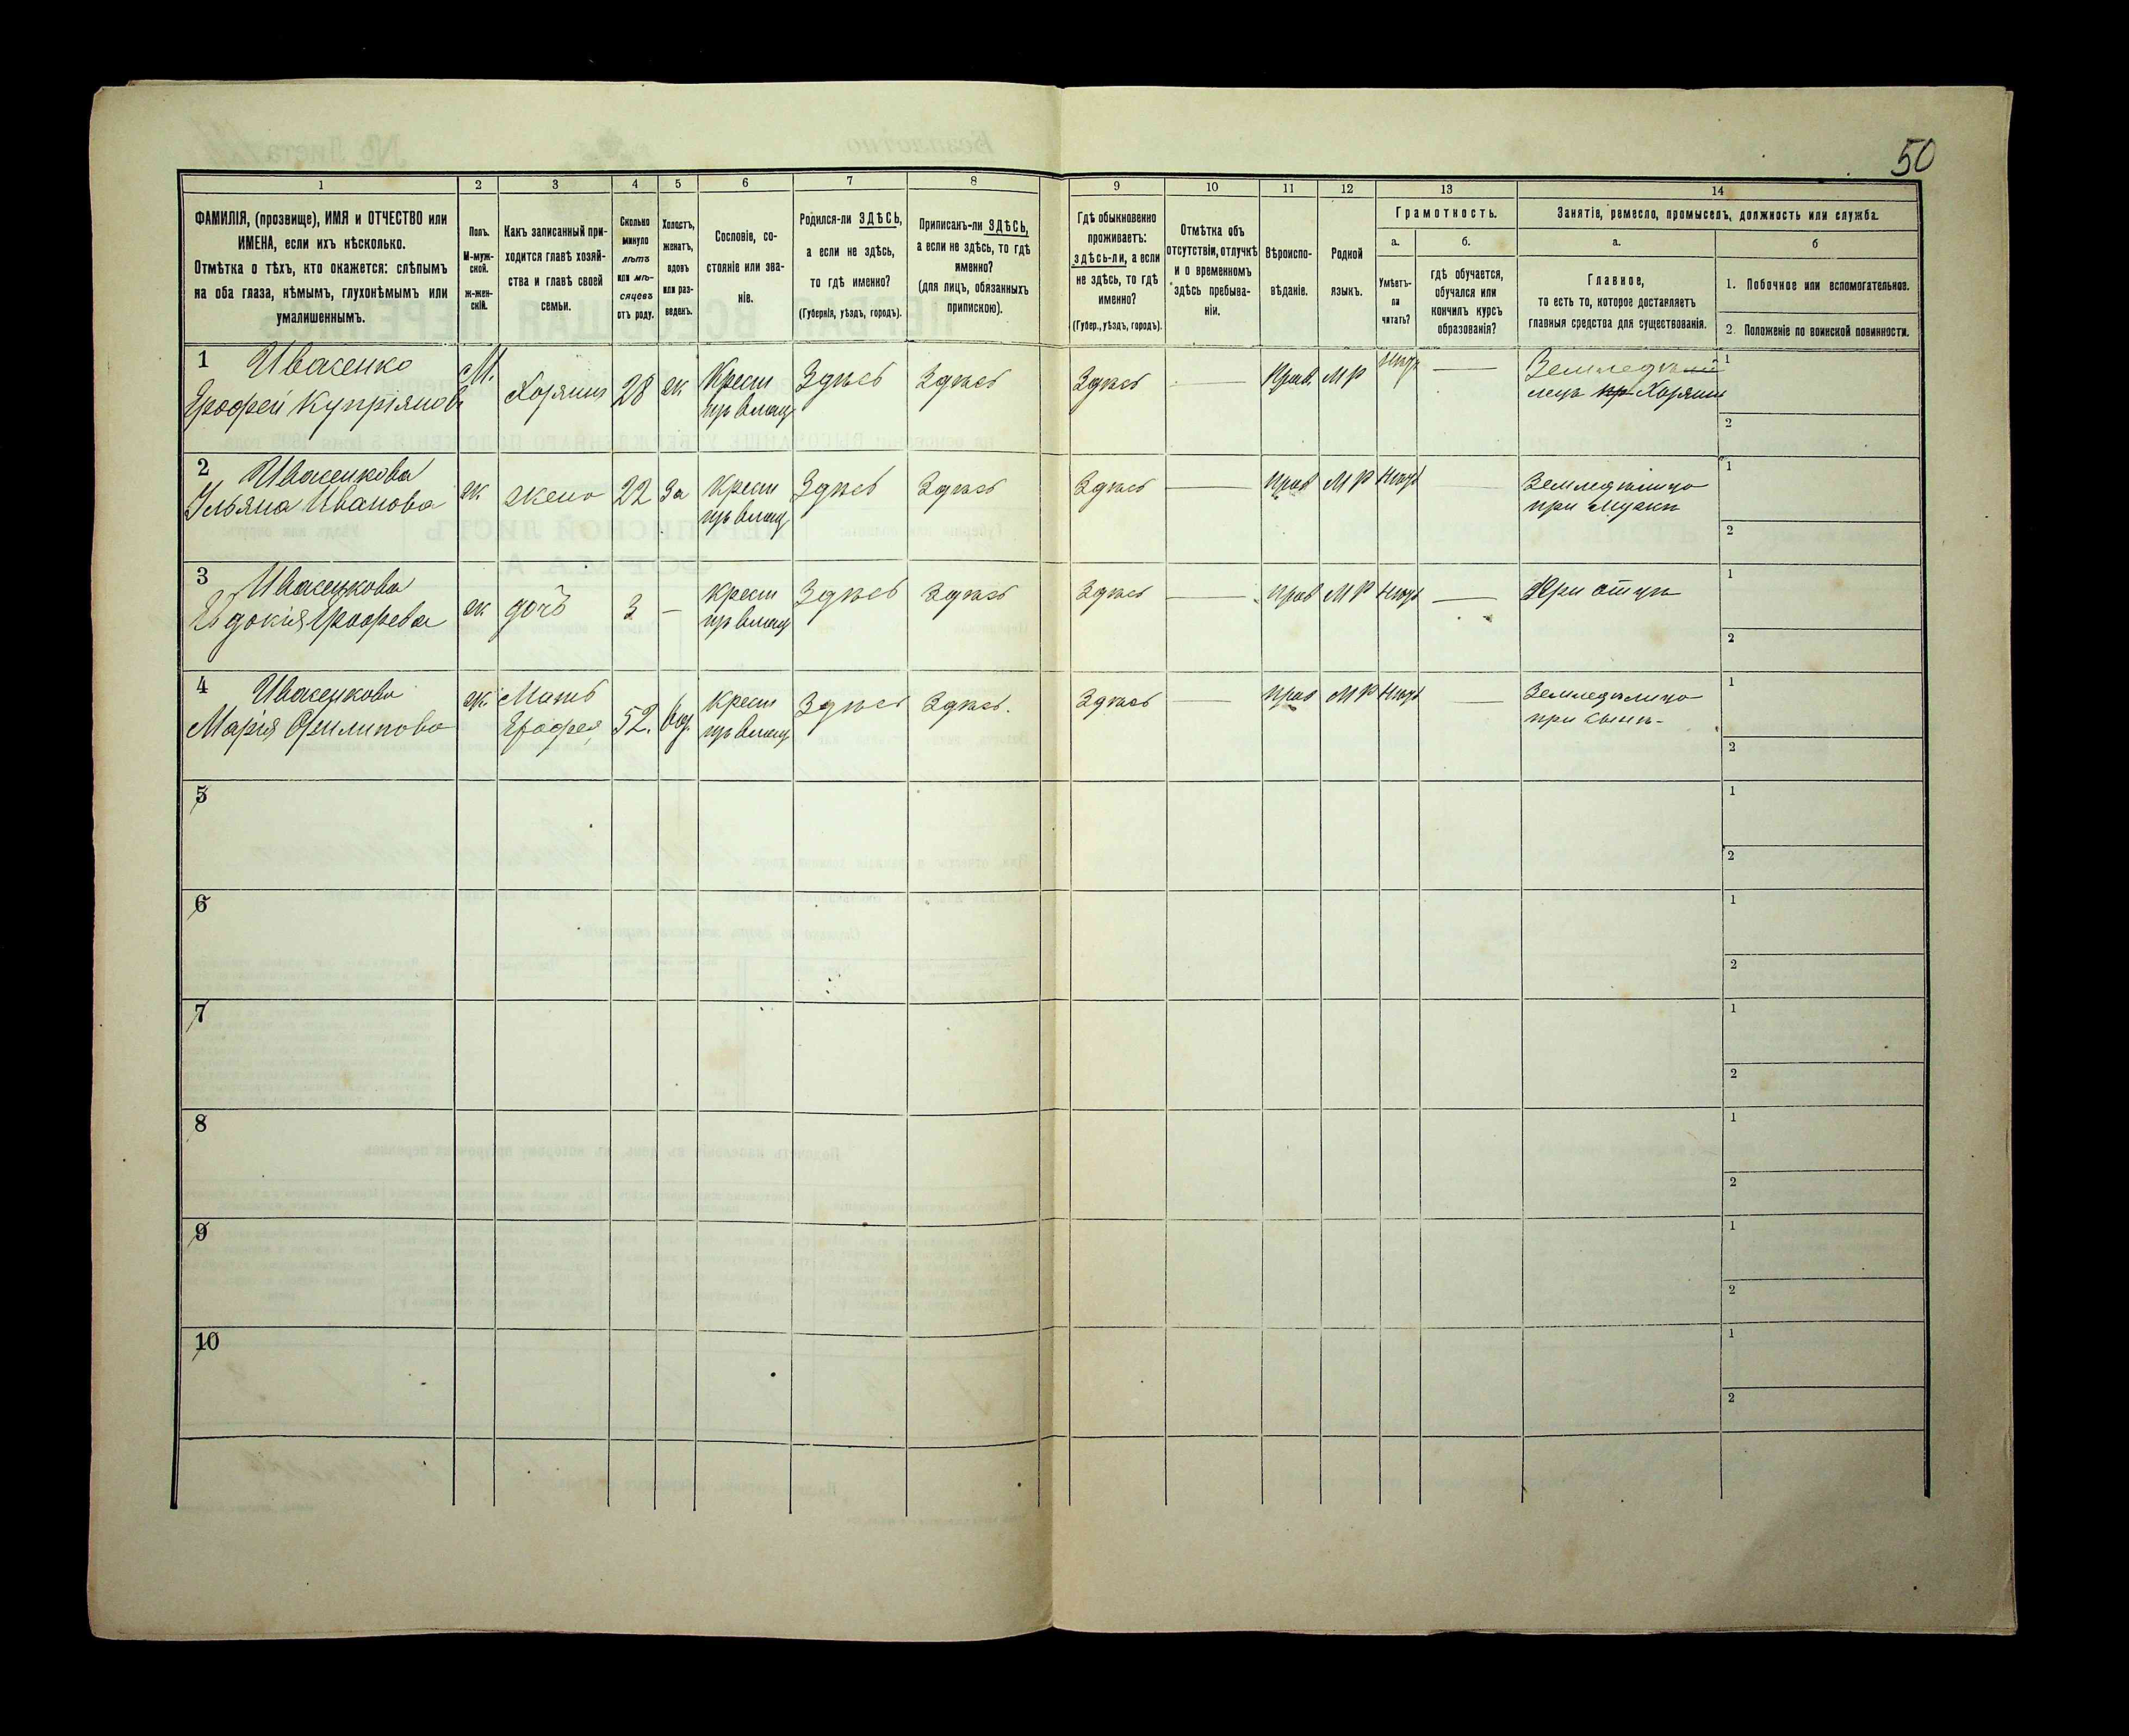 50
1 2 3 4 5 6 7 8 9 10 11 12 13 14
ФАМИЛІЯ, (прозвище), ИМЯ и ОТЧЕСТВО или
ИМЕНА, если ихъ нѣсколько.
Отмѣтка о тѣхъ, кто окажется: слѣпымъ
на оба глаза, нѣмымъ, глухонѣмымъ или
умалишеннымъ.
Полъ.
М-муж-
ской.
ж-жен-
скій.
Какъ записанный при-
ходится главѣ хозяй-
ства и главѣ своей
семьи.
Сколько
минуло
лѣтъ
или мѣ-
сяцевъ
отъ роду.
Холостъ,
женатъ,
вдовъ
или раз-
веденъ.
Сословіе, со-
стояніе или зва-
ніе.
Родился-ли ЗДѢСЬ,
а если не здѣсь,
то гдѣ именно?
(Губернія, уѣздъ, городъ).
Приписанъ-ли ЗДѢСЬ,
а если не здѣсь, то гдѣ
именно?
(для лицъ, обязанныхъ
припискою).
Гдѣ обыкновенно
проживаетъ:
здѣсь-ли, а если
не здѣсь, то гдѣ
именно?
(Губер., уѣздъ, городъ).
Отмѣтка объ
отсутствіи, отлучкѣ
и о временномъ
здѣсь пребыва-
ніи.
Вѣроиспо-
вѣданіе.
Родной
языкъ.
Грамотность.
а.
Умѣетъ-
ли
читать?
б.
гдѣ обучается,
обучался или
кончилъ курсъ
образованія?
Занятіе, ремесло, промыселъ, должность или служба.
а.
Главное,
то есть то, которое доставляетъ
главныя средства для существованія.
б
1. Побочное или вспомогательное.
2. Положеніе по воинской повинности.
1 Ивасенко
Ерофей Купріяновъ
М.
Хозяинъ
28
ж
Крест
изъ влад
Здѣсь
Здѣсь
Здѣсь
—
Прав.
МР
Нѣтъ
—
Земледѣ
лецъ Хозяинъ
1
2
2 Ивасенкова
Ульяна Иванова
ж
жена
22
За
Крест
изъ влад
Здѣсь
Здѣсь
Здѣсь
—
Прав
МР
Нѣтъ
—
Земледѣлица
при мужѣ
1
2
3 Ивасенкова
Евдокія Ерофеева
ж
дочь
3
—
Крест
изъ влад
Здѣсь
Здѣсь
Здѣсь
—
Прав
МР
Нѣтъ
—
При отцѣ
1
2
4 Ивасенкова
Марія Филипова
ж.
Мать
Ерофея
52.
вд.
Крест
изъ влад
Здѣсь
Здѣсь.
Здѣсь
—
Прав
МР
Нѣтъ
—
Земледѣлица
при сынѣ-
1
2
5
1
2
6
1
2
7
1
2
8
1
2
9
1
2
10
1
2